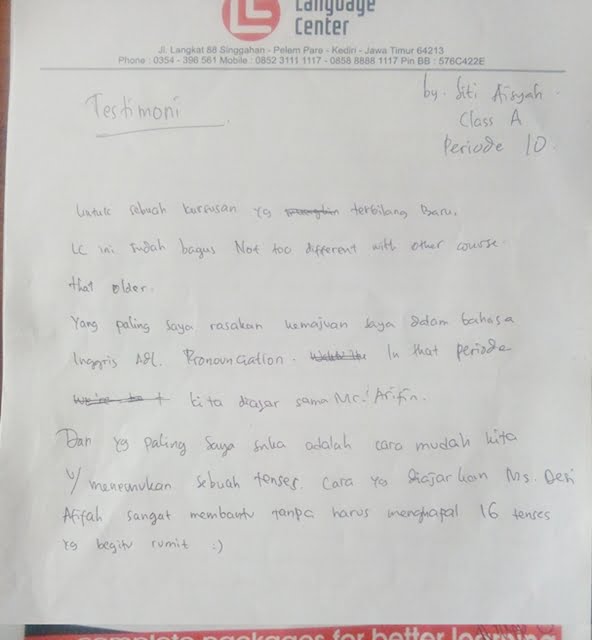 Language
LC
Center
Jl. Langkat 88 Singgahan - Pelem Pare - Kediri - Jawa Timur 64213
Phone : 0354 - 396 561 Mobile : 0852 3111 1117 - 0858 8888 1117 Pin BB : 576C422E
by. Siti Aisyah.
Testimoni
Class A
Periode 10.
Untuk sebuah kursusan yg terbilang Baru.
LC ini sudah bagus Not too different with other course.
that older.
Yang paling saya rasakan kemajuan saya dalam bahasa
Inggris adl. Pronounciation. In that periode
kita diajar sama Mr. Arifin.
Dan yg paling saya suka adalah cara mudah kita
u/ menemukan sebuah tenses. Cara yg diajarkan Ms. Desi
Afifah sangat membantu tanpa harus menghapal 16 tenses
yg begitu rumit :)
complete packages for better learning